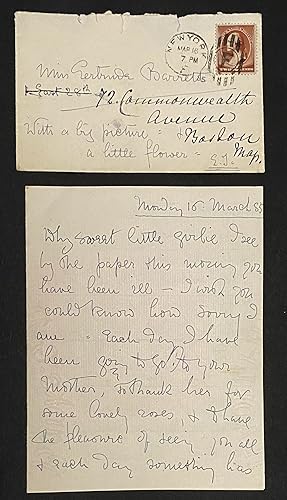 NEW YORK
MAR 16
7 PM
Miss Gertrude Barrett
1 East 28th
72. Commonwealth
Avenue
With a big picture = &
Boston
a little flower =
Mass.
E.T.
Monday 16. March. 85
Why sweet little girlie I see
by the paper this morning you
have been ill — I wish you
could know how sorry I
am = Each day I have
been going to go to your
Mother, to thank her for
some lovely roses, & to have
the pleasure of seeing you all
& each day something has